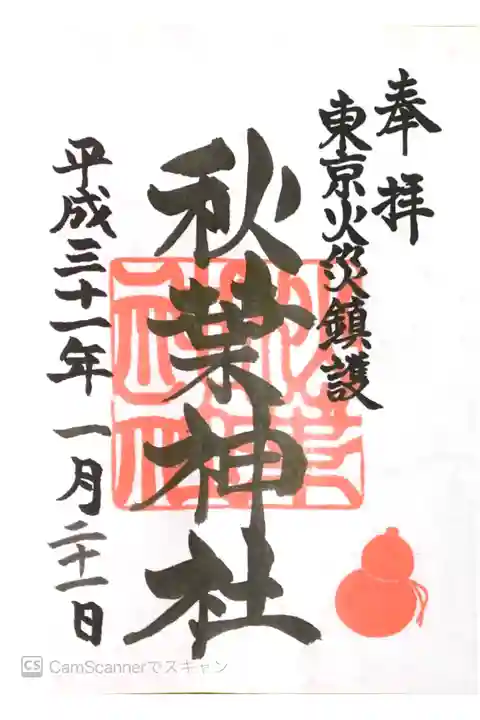 奉拝
東京火災鎮護
秋葉神社
平成三十一年 一月二十一日
CS CamScannerでスキャン